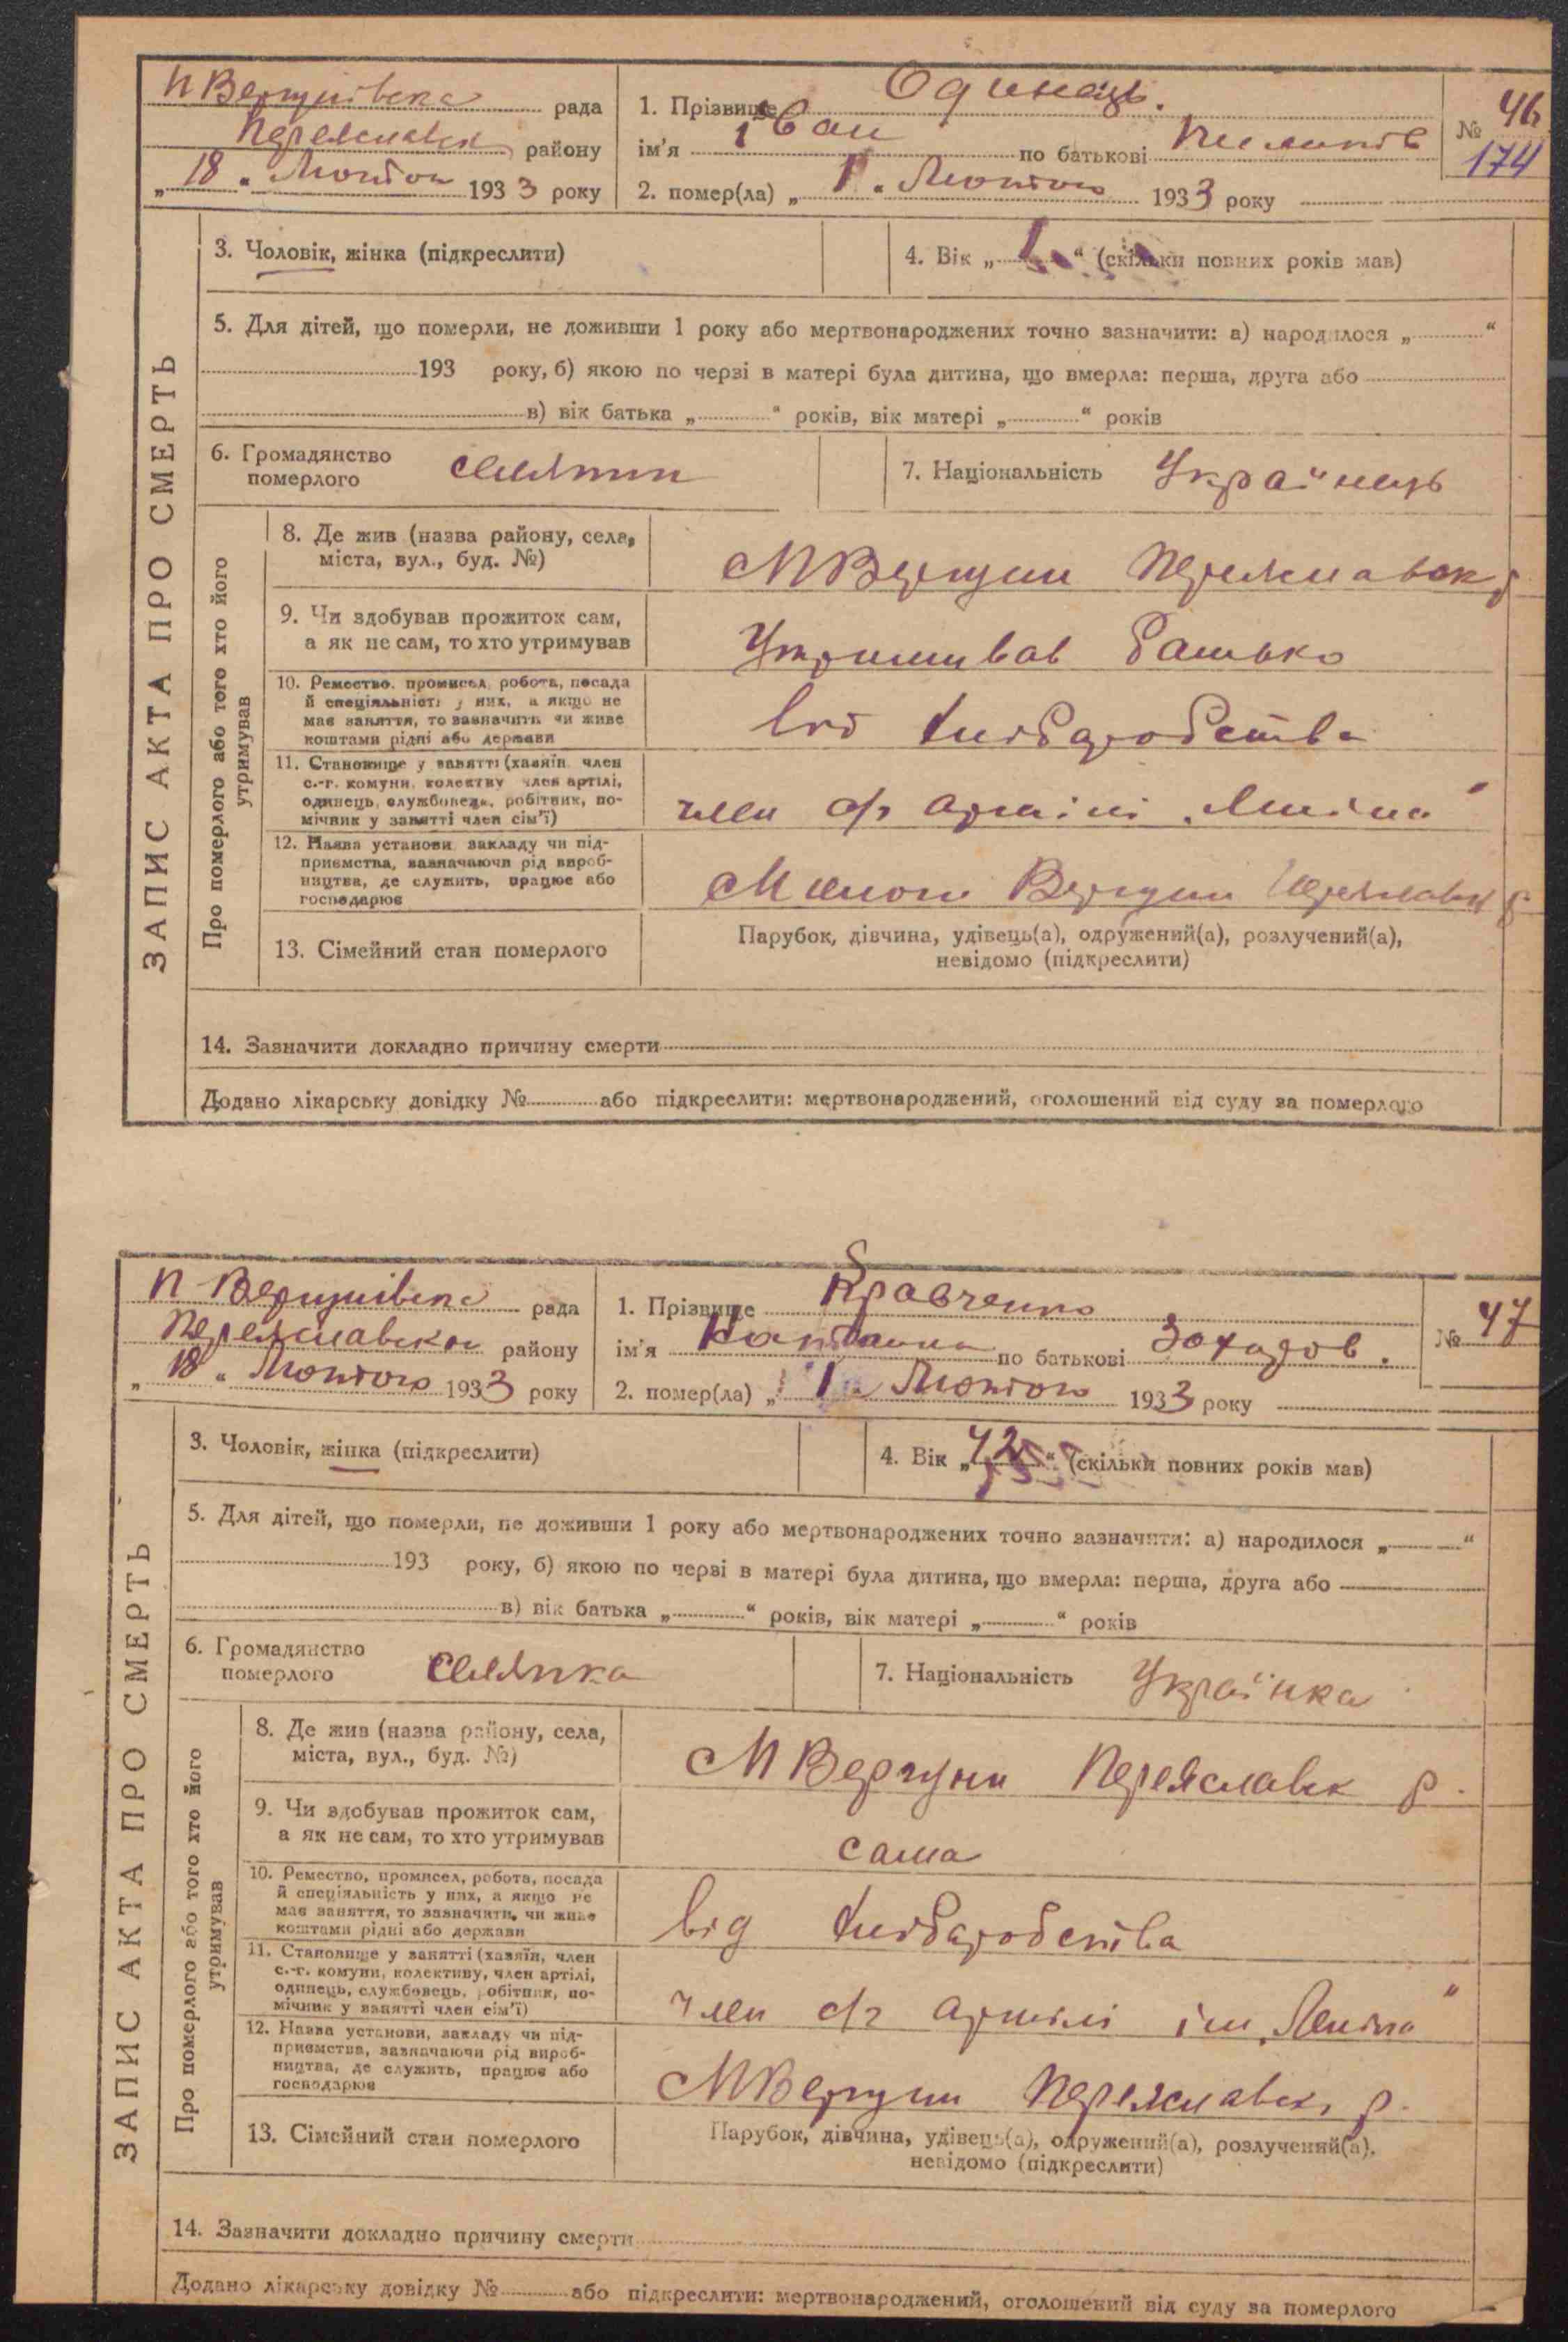 П Вергунівська рада
Переяславськ району
„18“ Лютого 1933 року
1. Прізвище Одинець.
ім’я Іван по батькові Пилипів
2. помер(ла) „1“ Лютого 1933 року
№ 46
174
ЗАПИС АКТА ПРО СМЕРТЬ
3. Чоловік, жінка (підкреслити)
4. Вік „1“ (скільки повних років мав)
5. Для дітей, що померли, не доживши 1 року або мертвонароджених точно зазначити: а) народилося „ “
193 року, б) якою по черзі в матері була дитина, що вмерла: перша, друга або
в) вік батька „ “ років, вік матері „ “ років
6. Громадянство
померлого
селянин
7. Національність Українець
Про померлого або того хто його
утримував
8. Де жив (назва району, села,
міста, вул., буд. №)
М Вергуни Переяславськ р
9. Чи здобував прожиток сам,
а як не сам, то хто утримував
Утримував батько
10. Ремество, промисел, робота, посада
й спеціяльність у них, а якщо не
має заняття, то зазначити чи живе
коштами рідні або держави
від хліборобства
11. Становище у занятті (хазяїн, член
с.-г. комуни, колективу, член артілі,
одинець, службовець, робітник, по-
мічник у занятті член сім’ї)
член с/г артілі „Леніна“
12. Назва установи, закладу чи під-
приємства, зазначаючи рід вироб-
ництва, де служить, працює або
господарює
Вергуни Переяславськ р
13. Сімейний стан померлого
Парубок, дівчина, удівець(а), одружений(а), розлучений(а),
невідомо (підкреслити)
14. Зазначити докладно причину смерти
Додано лікарську довідку № або підкреслити: мертвонароджений, оголошений від суду за померлого
П Вергунівська рада
Переяславськ району
„18“ Лютого 1933 року
1. Прізвище Кравченко
ім’я по батькові
2. помер(ла) „1“ Лютого 1933 року
№ 47
ЗАПИС АКТА ПРО СМЕРТЬ
3. Чоловік, жінка (підкреслити)
4. Вік „ “ (скільки повних років мав)
5. Для дітей, що померли, не доживши 1 року або мертвонароджених точно зазначити: а) народилося „ “
193 року, б) якою по черзі в матері була дитина, що вмерла: перша, друга або
в) вік батька „ “ років, вік матері „ “ років
6. Громадянство
померлого
селянка
7. Національність Українка
Про померлого або того хто його
утримував
8. Де жив (назва району, села,
міста, вул., буд. №)
М Вергуни Переяславськ р.
9. Чи здобував прожиток сам,
а як не сам, то хто утримував
сама
10. Ремество, промисел, робота, посада
й спеціяльність у них, а якщо не
має заняття, то зазначити, чи живе
коштами рідні або держави
від хліборобства
11. Становище у занятті (хазяїн, член
с.-г. комуни, колективу, член артілі,
одинець, службовець, робітник, по-
мічник у занятті член сім’ї)
член с/г артілі ім „Леніна“
12. Назва установи, закладу чи під-
приємства, зазначаючи рід вироб-
ництва, де служить, працює або
господарює
М Вергуни Переяславськ р.
13. Сімейний стан померлого
Парубок, дівчина, удівець(а), одружений(а), розлучений(а),
невідомо (підкреслити)
14. Зазначити докладно причину смерти
Додано лікарську довідку № або підкреслити: мертвонароджений, оголошений від суду за померлого